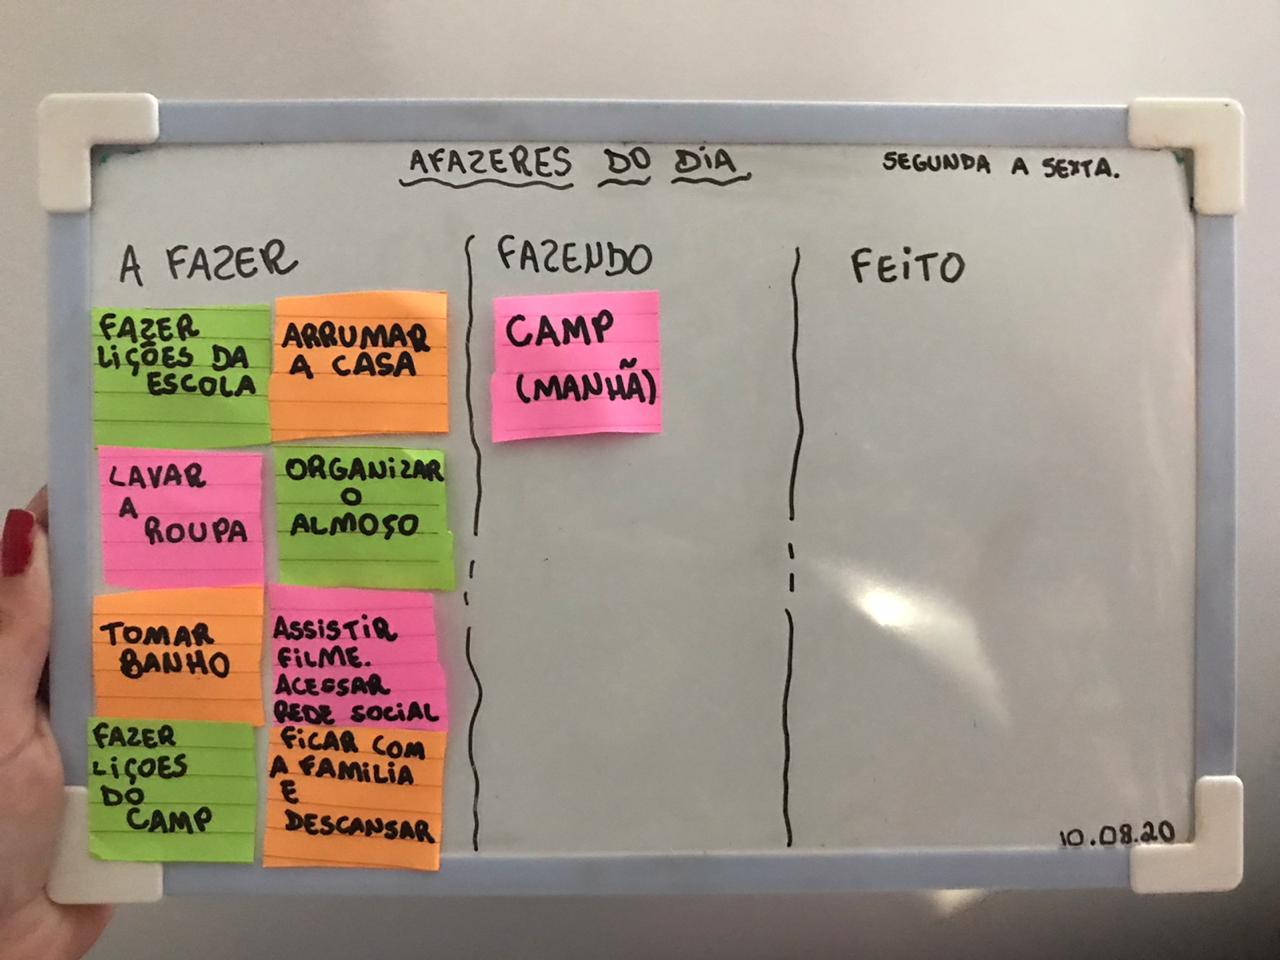 AFAZERES DO DIA
SEGUNDA A SEXTA.
A FAZER
FAZER
LIÇÕES DA
ESCOLA
ARRUMAR
A CASA
LAVAR
A
ROUPA
ORGANIZAR
O
ALMOÇO
TOMAR
BANHO
ASSISTIR
FILME.
ACESSAR
REDE SOCIAL
FAZER
LIÇOES
DO
CAMP
FICAR COM
A FAMILIA
E
DESCANSAR
FAZENDO
CAMP
(MANHÃ)
FEITO
10.08.20